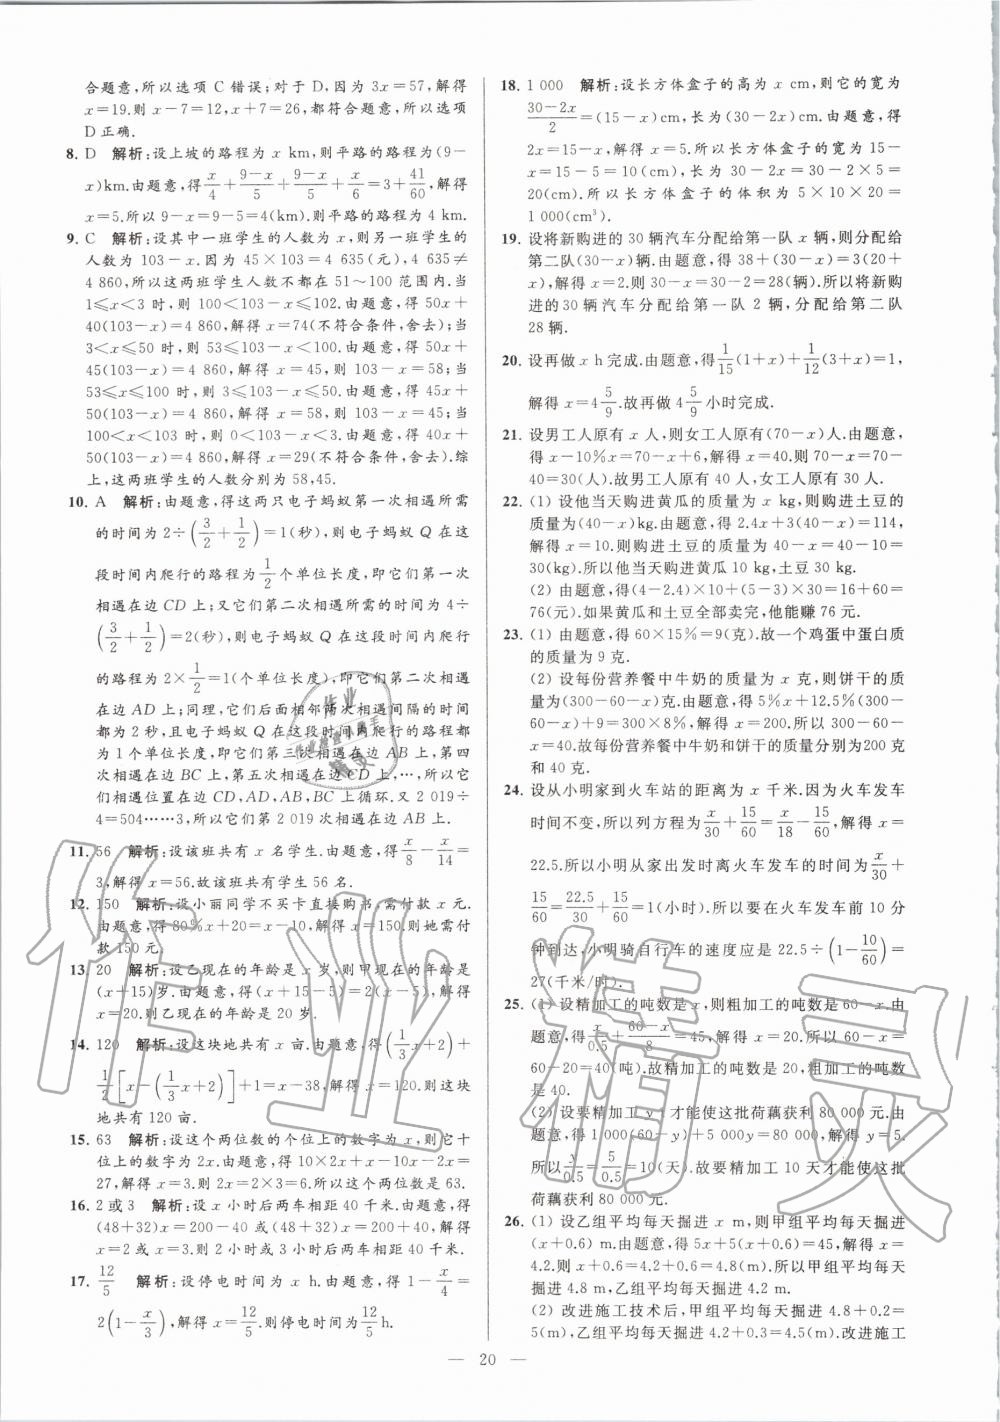 合题意,所以选项 C 错误;对于 D,因为 3x=57,解得
x=19.则 x-7=12,x+7=26,都符合题意,所以选项
D 正确.
8. D 解析:设上坡的路程为 x km,则平路的路程为(9-
x)km.由题意,得x/4+(9-x)/5+(9-x)/5+x/6=3+41/60,解得
x=5.所以 9-x=9-5=4(km).则平路的路程为 4 km.
9. C 解析:设其中一班学生的人数为 x,则另一班学生的
人数为 103-x.因为 45×103=4 635(元),4 635≠
4 860,所以这两班学生人数不都在 51～100 范围内.当
1≤x<3 时,则 100<103-x≤102.由题意,得 50x+
40(103-x)=4 860,解得 x=74(不符合条件,舍去);当
3<x≤50 时,则 53≤103-x≤100.由题意,得 50x+
45(103-x)=4 860,解得 x=45,则 103-x=58;当
53≤x≤100 时,则 3≤103-x≤50.由题意,得 45x+
50(103-x)=4 860,解得 x=58,则 103-x=45;当
100<x<103 时,则 0<103-x<3.由题意,得 40x+
50(103-x)=4 860,解得 x=29(不符合条件,舍去).综
上,这两班学生的人数分别为 58,45.
10. A 解析:由题意,得这两只电子蚂蚁第一次相遇所需
的时间为 2÷(3/2+1/2)=1(秒),则电子蚂蚁 Q 在这
段时间内爬行的路程为1/2个单位长度,即它们第一次
相遇在边 CD 上;又它们第二次相遇所需的时间为 4÷
(3/2+1/2)=2(秒),则电子蚂蚁 Q 在这段时间内爬行
的路程为 2×1/2=1(个单位长度),即它们第二次相遇
在边 AD 上;同理,它们后面相邻两次相遇间隔的时间
都为 2 秒,且电子蚂蚁 Q 在这段时间内爬行的路程都
为 1 个单位长度,即第三次相遇在边 AB 上,第四
次相遇在边 BC 上,第五次相遇在边 CD 上,…,所以它
们相遇位置在边 CD,AD,AB,BC 上循环.又 2 019÷
4=504……3,所以它们第 2 019 次相遇在边 AB 上.
11. 56 解析:设该班共有 x 名学生.由题意,得x/8-x/14=
3,解得 x=56.故该班共有学生 56 名.
12. 150 解析:设小丽同学不买卡直接购书需付款 x 元.
由题意,得 80%x+20=x-10,解得 x=150.则她需付
款 150 元.
13. 20 解析:设乙现在的年龄是 x 岁,则甲现在的年龄是
(x+15)岁.由题意,得(x+15-5)=2(x-5),解得
x=20.则乙现在的年龄是 20 岁.
14. 120 解析:设这块地共有 x 亩.由题意,得(1/3x+2)+
1/2[x-(1/3x+2)]+1=x-38,解得 x=120.则这块
地共有 120 亩.
15. 63 解析:设这个两位数的个位上的数字为 x,则它十
位上的数字为 2x.由题意,得 10×2x+x-10x-2x=
27,解得 x=3.则 2x=2×3=6.所以这个两位数是 63.
16. 2或3 解析:设 x 小时后两车相距 40 千米.由题意,得
(48+32)x=200-40 或(48+32)x=200+40,解得
x=2或 x=3.则 2 小时或 3 小时后两车相距 40 千米.
17. 12/5 解析:设停电时间为 x h.由题意,得 1-x/4=
2(1-x/3),解得 x=12/5.则停电时间为12/5 h.
18. 1 000 解析:设长方体盒子的高为 x cm,则它的宽为
(30-2x)/2=(15-x)cm,长为(30-2x)cm.由题意,得
2x=15-x,解得 x=5.所以长方体盒子的宽为 15-
x=15-5=10(cm),长为 30-2x=30-2×5=
20(cm).所以长方体盒子的体积为 5×10×20=
1 000(cm³).
19. 设将新购进的 30 辆汽车分配给第一队 x 辆,则分配给
第二队(30-x)辆.由题意,得 38+(30-x)=3(20+
x),解得 x=2.则 30-x=30-2=28(辆).所以将新购
进的 30 辆汽车分配给第一队 2 辆,分配给第二队
28 辆.
20. 设再做 x h 完成.由题意,得1/15(1+x)+1/12(3+x)=1,
解得 x=4 5/9.故再做 4 5/9小时完成.
21. 设男工人原有 x 人,则女工人原有(70-x)人.由题意,
得 x-10%x=70-x+6,解得 x=40.则 70-x=70-
40=30(人).故男工人原有 40 人,女工人原有 30 人.
22. (1) 设他当天购进黄瓜的质量为 x kg,则购进土豆的
质量为(40-x)kg.由题意,得 2.4x+3(40-x)=114,
解得 x=10.则购进土豆的质量为 40-x=40-10=
30(kg).所以他当天购进黄瓜10 kg,土豆 30 kg.
(2) 由题意,得(4-2.4)×10+(5-3)×30=16+60=
76(元).如果黄瓜和土豆全部卖完,他能赚 76 元.
23. (1) 由题意,得 60×15%=9(克).故一个鸡蛋中蛋白质
的质量为 9 克.
(2) 设每份营养餐中牛奶的质量为 x 克,则饼干的质
量为(300-60-x)克.由题意,得 5%x+12.5%(300-
60-x)+9=300×8%,解得 x=200.所以 300-60-
x=40.故每份营养餐中牛奶和饼干的质量分别为200 克
和 40 克.
24. 设从小明家到火车站的距离为 x 千米.因为火车发车
时间不变,所以列方程为x/30+15/60=x/18-15/60,解得 x=
22.5.所以小明从家出发时离火车发车的时间为x/30+
15/60=22.5/30+15/60=1(小时).所以要在火车发车前 10 分
钟到达,小明骑自行车的速度应是 22.5÷(1-10/60)=
27(千米/时).
25. (1) 设精加工的吨数是 x,则粗加工的吨数是 60-x.由
题意,得x/0.5+(60-x)/8=45,解得 x=20.所以 60-x=
60-20=40(吨).故精加工的吨数是 20,粗加工的吨数
是 40.
(2) 设要精加工 y t 才能使这批荷藕获利 80 000 元.由
题意,得 1 000(60-y)+5 000y=80 000,解得 y=5.
所以y/0.5=5/0.5=10(天).故要精加工 10 天才能使这批
荷藕获利 80 000 元.
26. (1) 设乙组平均每天掘进 x m,则甲组平均每天掘进
(x+0.6) m.由题意,得 5x+5(x+0.6)=45,解得 x=
4.2.则 x+0.6=4.2+0.6=4.8(m).所以甲组平均每天掘
进 4.8 m,乙组平均每天掘进 4.2 m.
(2) 改进施工技术后,甲组平均每天掘进 4.8+0.2=
5(m),乙组平均每天掘进 4.2+0.3=4.5(m).改进施工
— 20 —
作业精灵